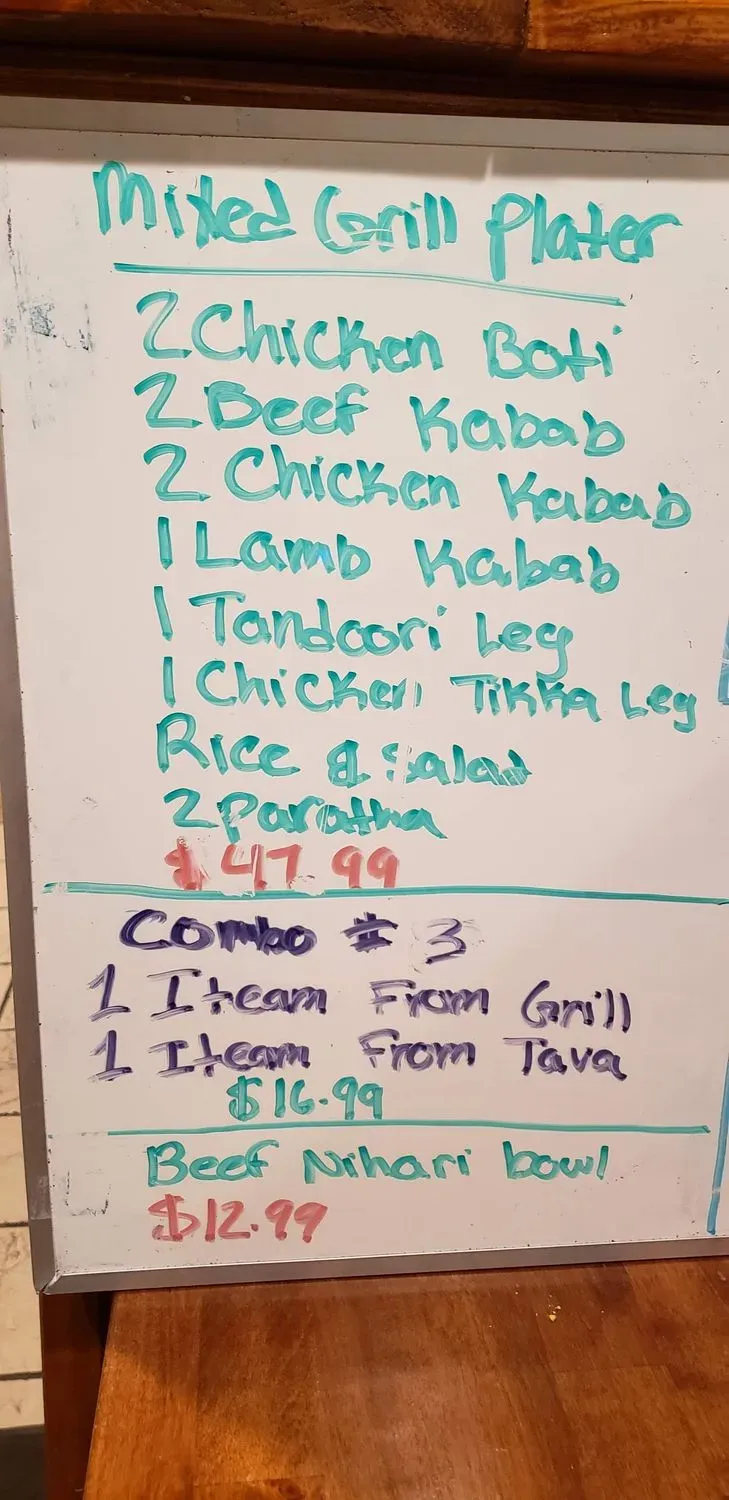 Mixed Grill Plater
2 Chicken Boti
2 Beef Kabab
2 Chicken Kabab
1 Lamb Kabab
1 Tandoori Leg
1 Chicken Tikka Leg
Rice & Salad
2 Paratha
$47.99
Combo # 3
1 Iteam From Grill
1 Iteam From Tava
$16.99
Beef Nihari bowl
$12.99